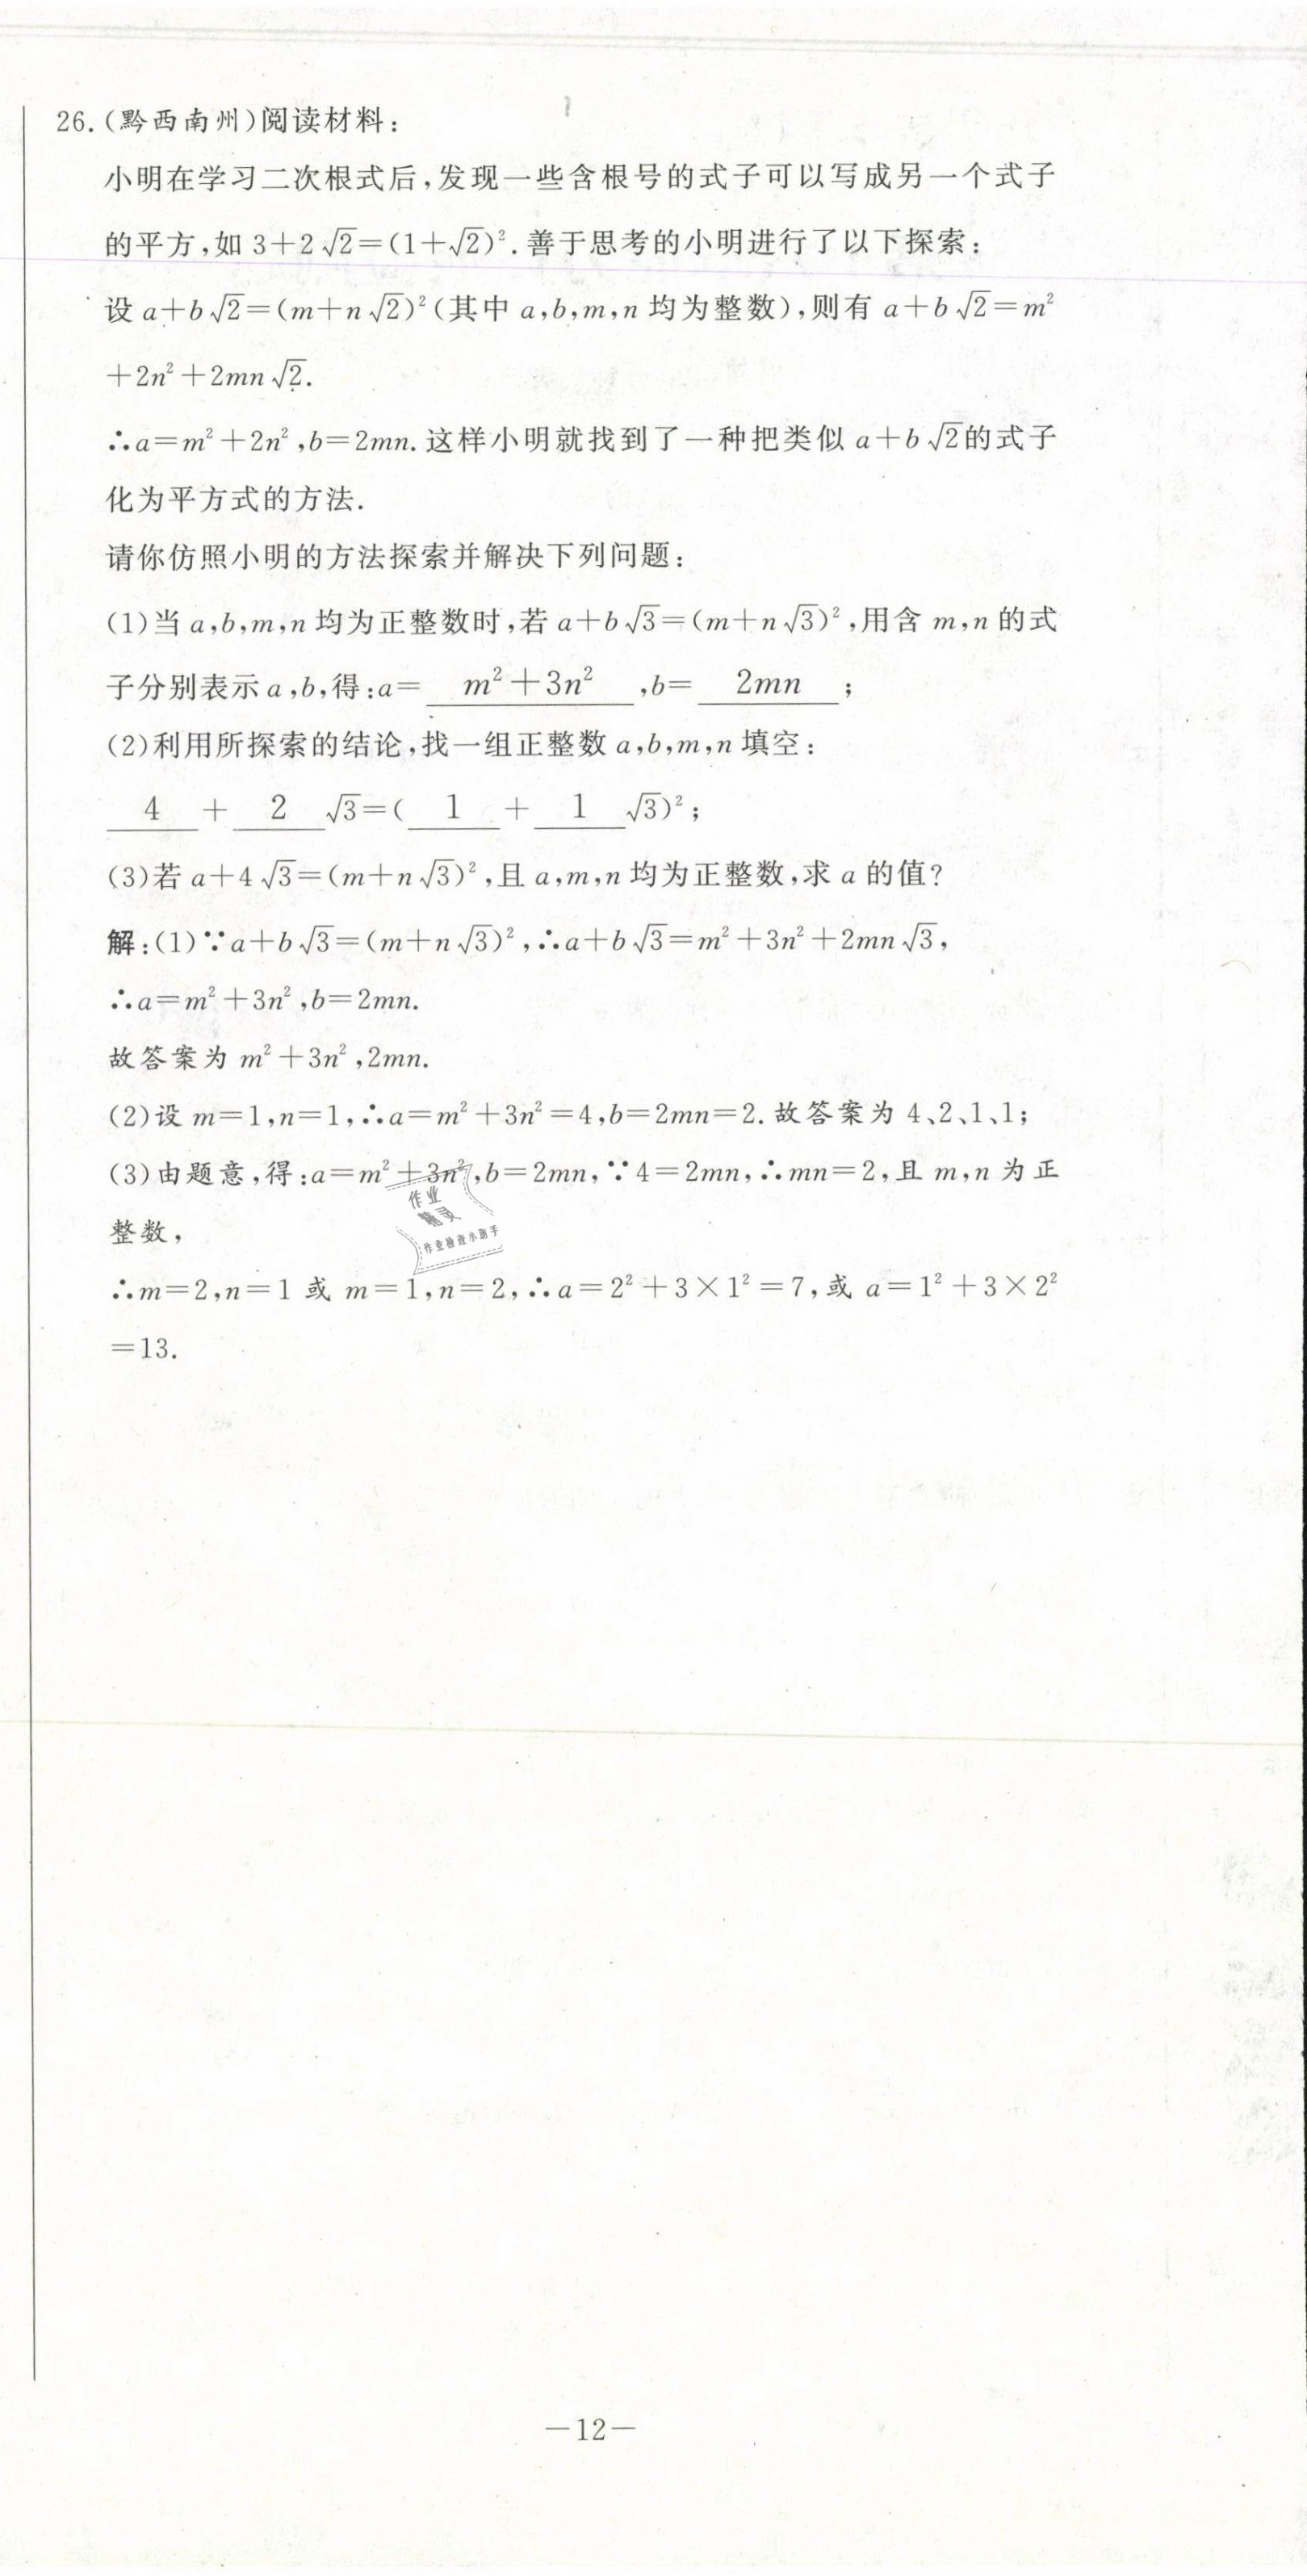 26.(黔西南州)阅读材料:
小明在学习二次根式后,发现一些含根号的式子可以写成另一个式子
的平方,如 3+2√2=(1+√2)².善于思考的小明进行了以下探索:
设 a+b√2=(m+n√2)²(其中 a,b,m,n 均为整数),则有 a+b√2=m²
+2n²+2mn√2.
∴a=m²+2n²,b=2mn.这样小明就找到了一种把类似 a+b√2的式子
化为平方式的方法.
请你仿照小明的方法探索并解决下列问题:
(1)当 a,b,m,n 均为正整数时,若 a+b√3=(m+n√3)²,用含 m,n 的式
子分别表示 a,b,得:a= m²+3n² ,b= 2mn ;
(2)利用所探索的结论,找一组正整数 a,b,m,n 填空:
4 + 2 √3=( 1 + 1 √3)²;
(3)若 a+4√3=(m+n√3)²,且 a,m,n 均为正整数,求 a 的值?
解:(1)∵a+b√3=(m+n√3)²,∴a+b√3=m²+3n²+2mn√3,
∴a=m²+3n²,b=2mn.
故答案为 m²+3n²,2mn.
(2)设 m=1,n=1,∴a=m²+3n²=4,b=2mn=2.故答案为 4、2、1、1;
(3)由题意,得:a=m²+3n²,b=2mn,∵4=2mn,∴mn=2,且 m,n 为正
整数,
作业
精灵
作业检查小助手
∴m=2,n=1 或 m=1,n=2,∴a=2²+3×1²=7,或 a=1²+3×2²
=13.
—12—